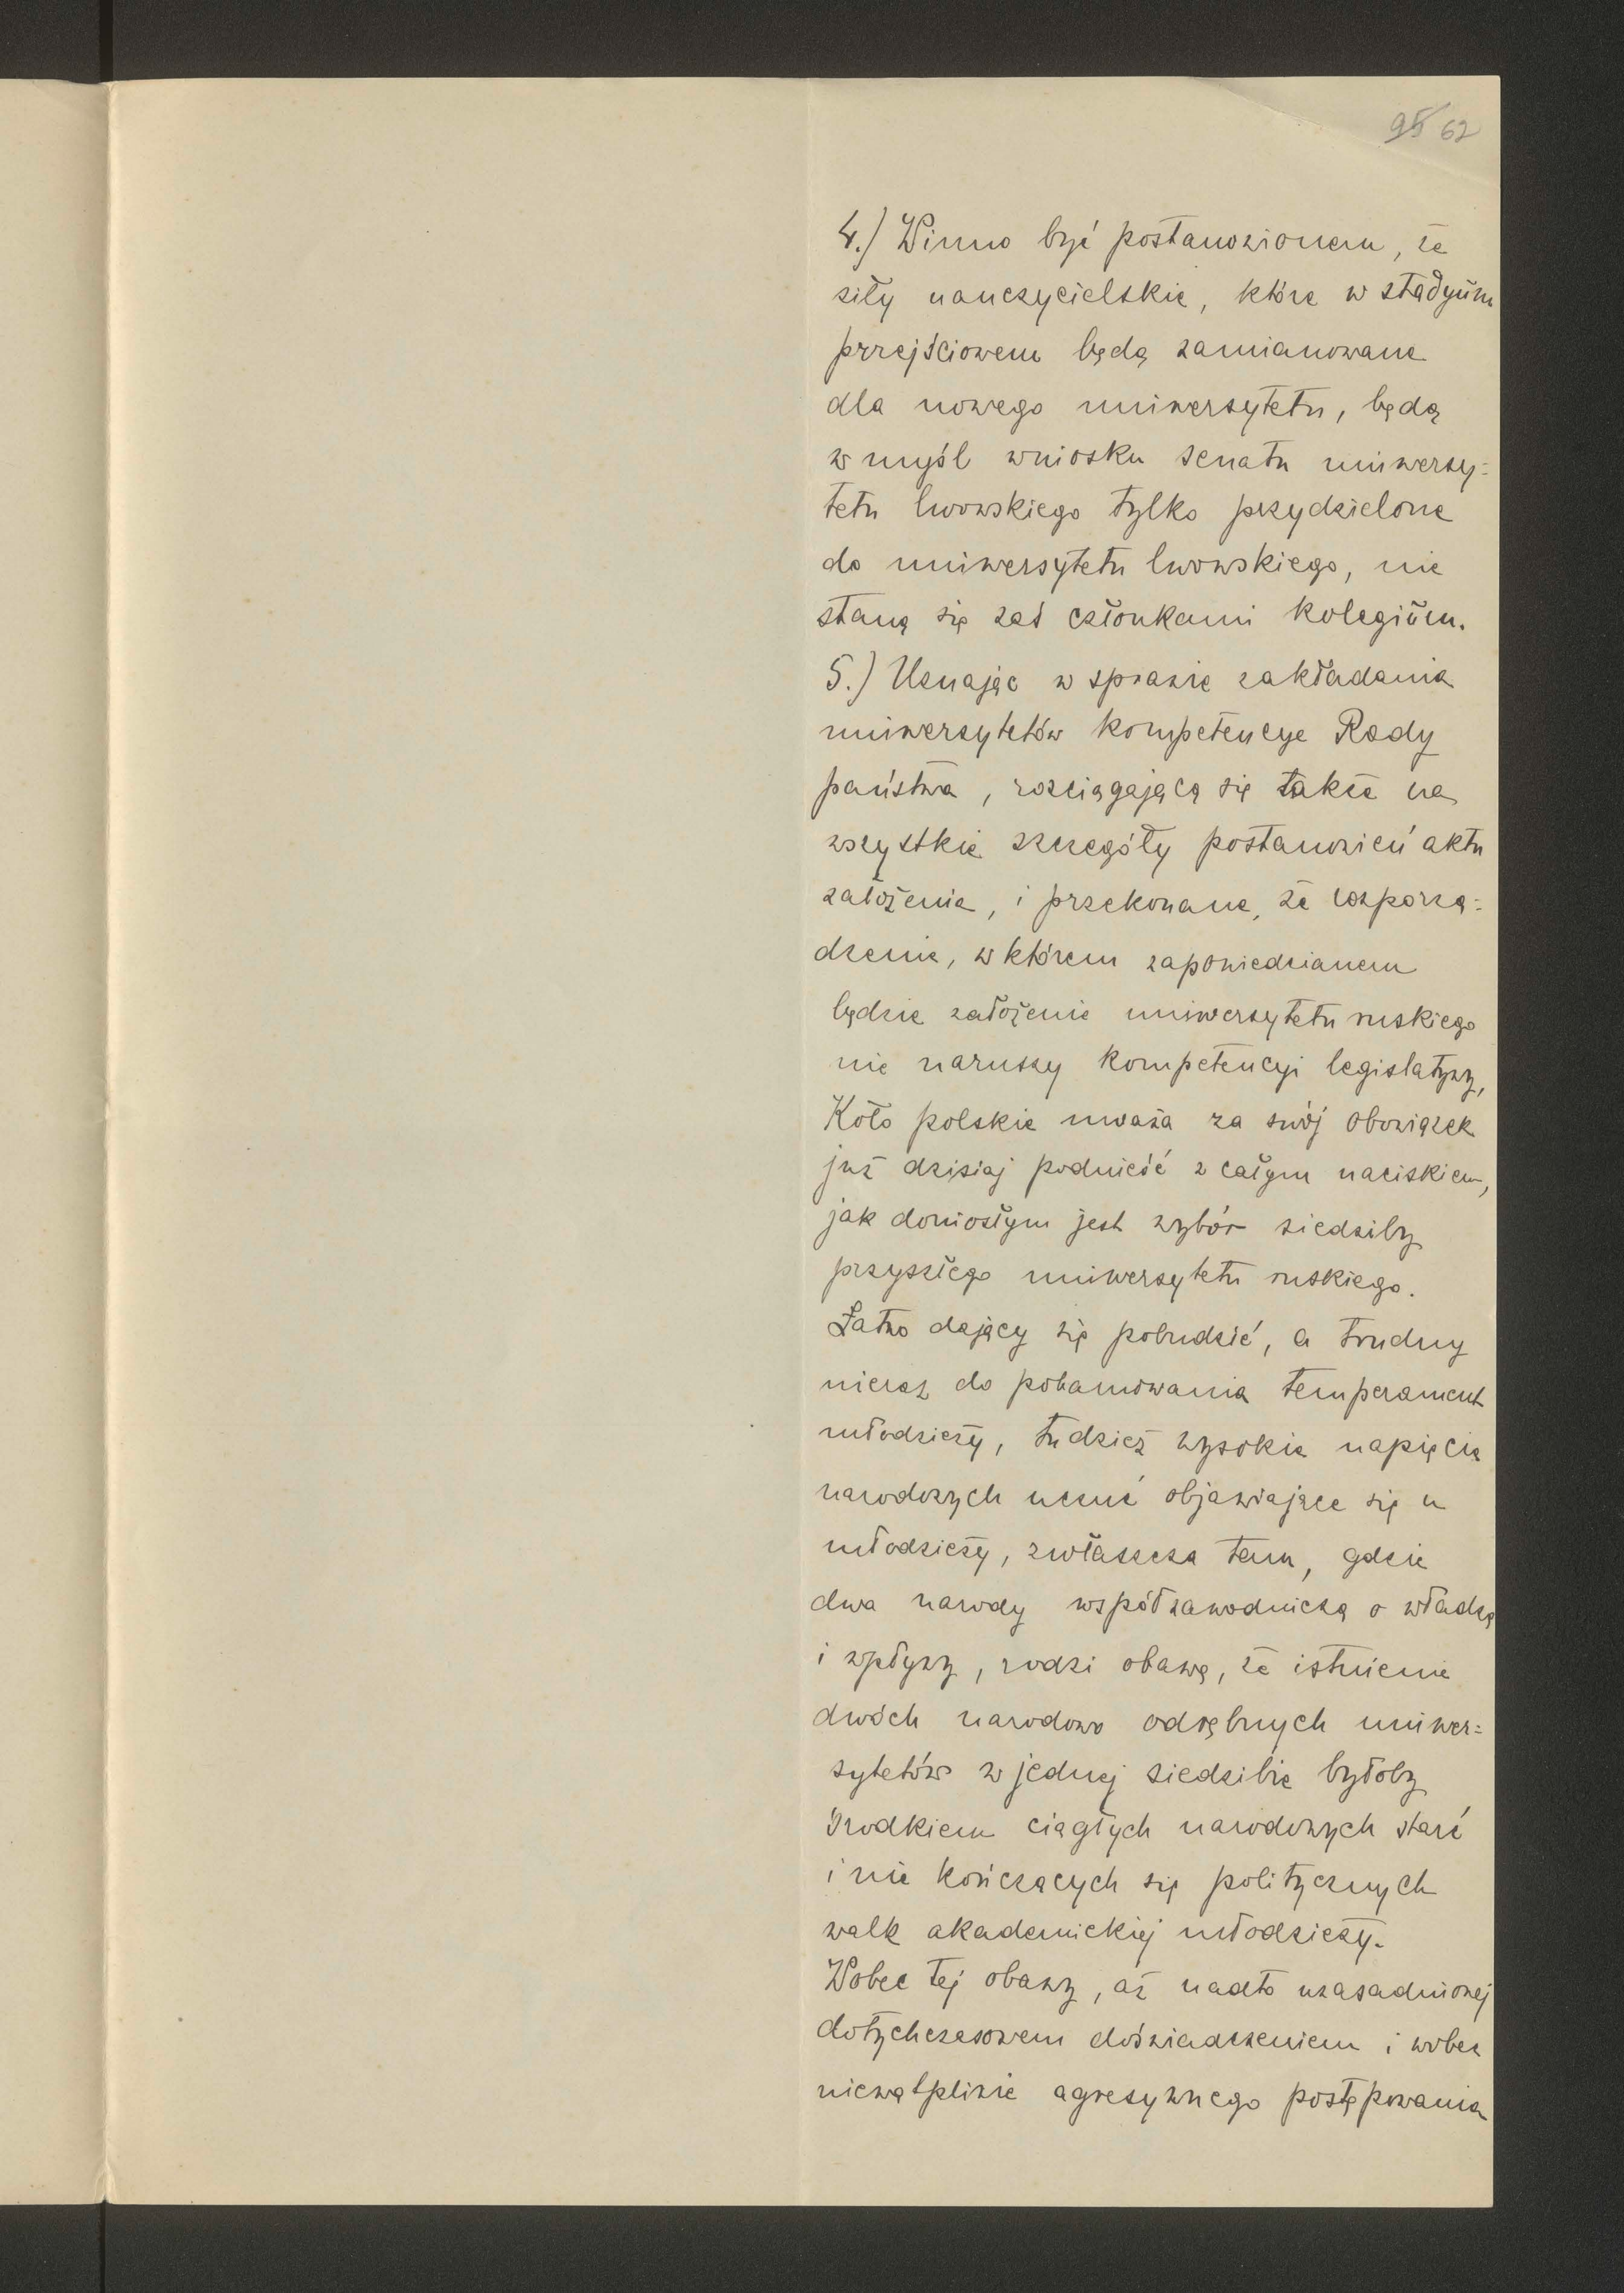 95 62
4.) Winno być postanowionem, że
siły nauczycielskie, które w stadyum
przejściowem będą zamianowane
dla nowego uniwersytetu, będą
w myśl wniosku senatu uniwersy=
tetu lwowskiego tylko przydzielone
do uniwersytetu lwowskiego, nie
staną się zaś członkami kolegium.
5.) Uznając w sprawie zakładania
uniwersytetów kompetencye Rady
państwa, rozciągającą się także na
wszystkie szczegóły postanowień aktu
założenia, i przekonane, że rozporzą=
dzenie, w którem zapowiedzianem
będzie założenie uniwersytetu ruskiego
nie naruszy kompetencyi legislatywy,
Koło polskie uważa za swój obowiązek
już dzisiaj podnieść z całym naciskiem,
jak doniosłym jest wybór siedziby
przyszłego uniwersytetu ruskiego.
Łatwo dający się pobudzić, a trudny
nieraz do pohamowania temperament
młodzieży, tudzież wysokie napięcie
narodowych uczuć objawiające się u
młodzieży, zwłaszcza tam, gdzie
dwa narody współzawodniczą o władzę
i wpływy, rodzi obawę, że istnienie
dwóch narodowo odrębnych uniwer=
sytetów w jednej siedzibie byłoby
środkiem ciągłych narodowych starć
i nie kończących się politycznych
walk akademickiej młodzieży.
Wobec tej obawy, aż nadto uzasadnionej
dotychczasowem doświadczeniem i wobec
niewątpliwie agresywnego postępowania